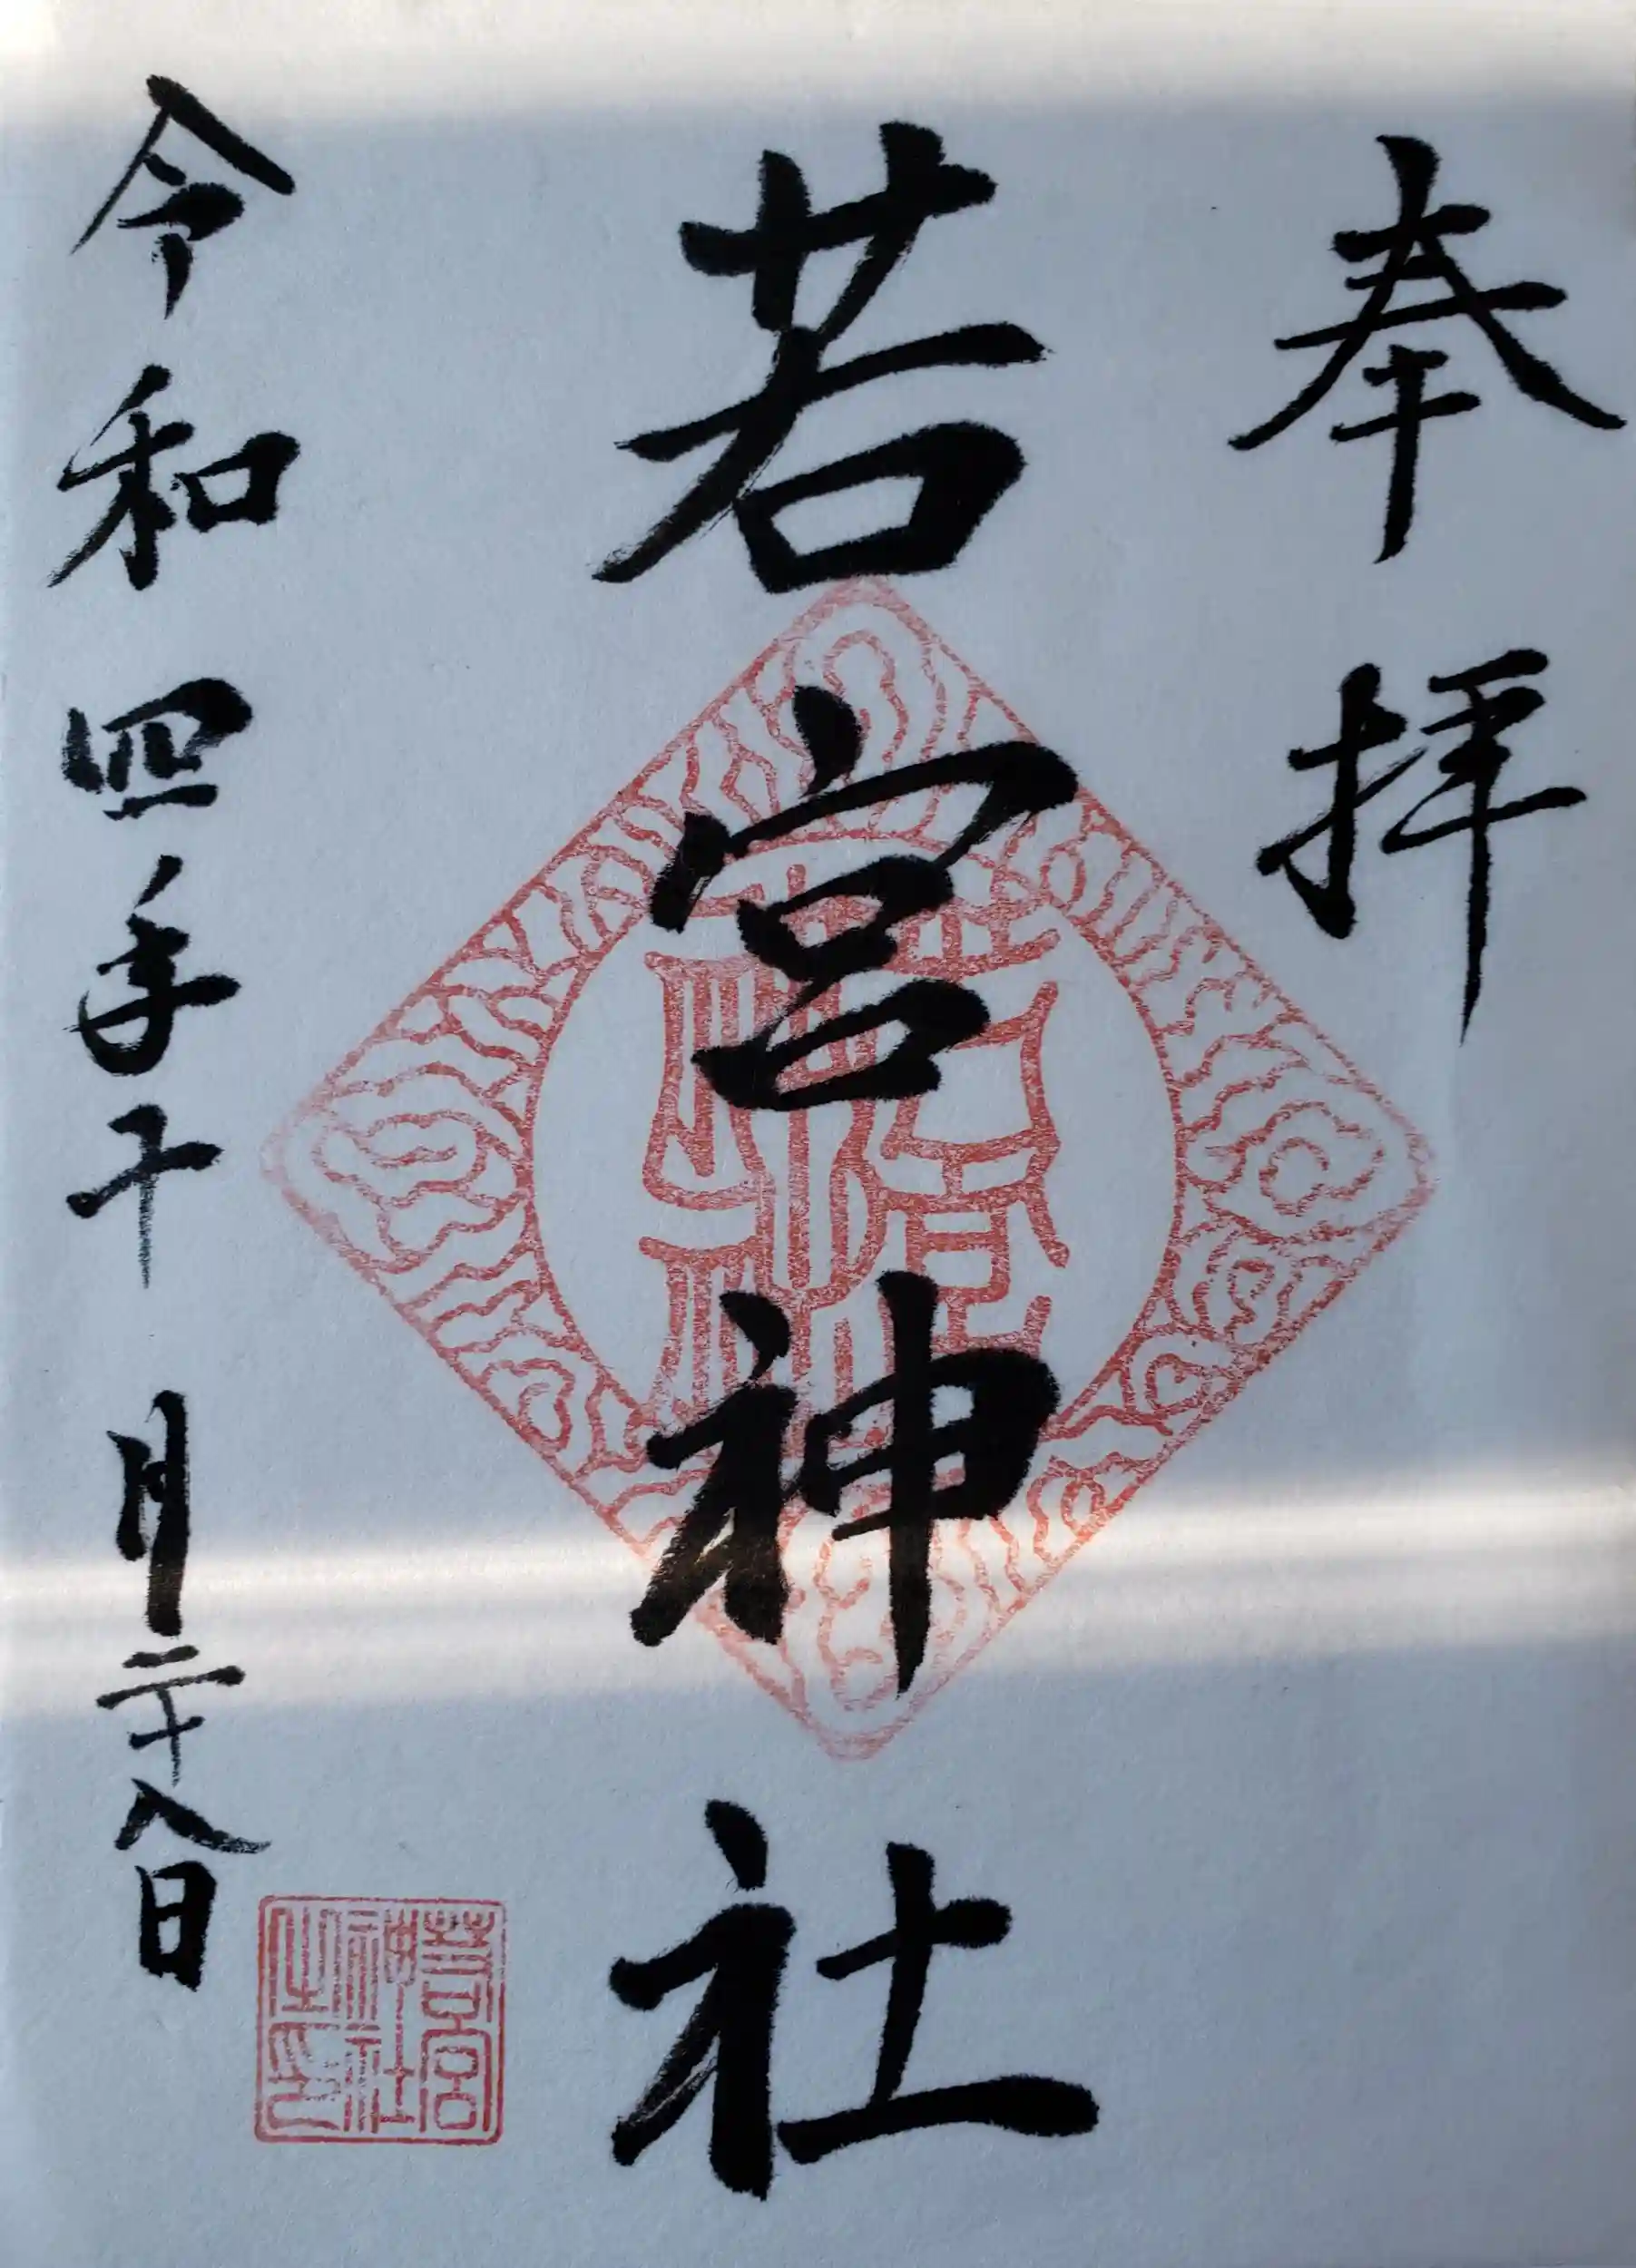 奉拝
若宮神社
令和四年十月二十八日
若宮
神社
之印